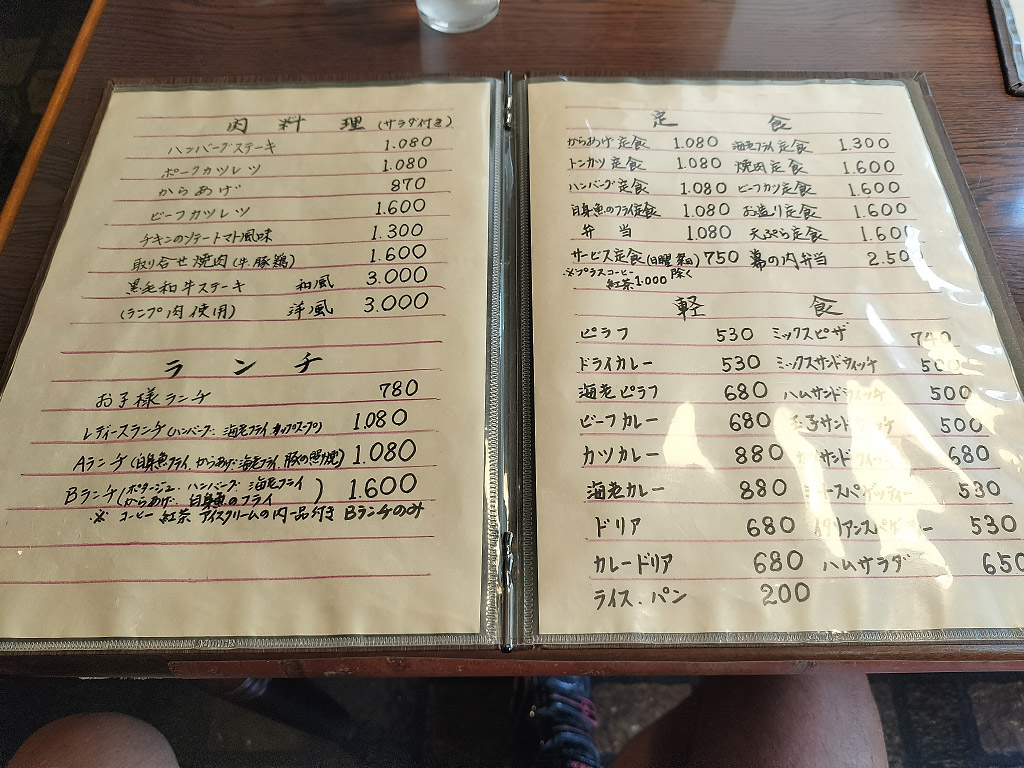 肉料理 (サラダ付き)
ハンバーグステーキ 1.080
ポークカツレツ 1.080
からあげ 870
ビーフカツレツ 1.600
チキンのソテートマト風味 1.300
取り合せ焼肉(牛.豚鶏) 1.600
黒毛和牛ステーキ 和風 3.000
(ランプ肉使用) 洋風 3.000
ランチ
お子様ランチ 780
レディースランチ(ハンバーグ. 海老フライ カップスープ) 1.080
Aランチ(白身魚フライ.からあげ.海老フライ.豚の照焼) 1.080
Bランチ(ポタージュ.ハンバーグ.海老フライ
からあげ.白身魚のフライ) 1.600
※ コーヒー 紅茶 アイスクリームの内一品付き Bランチのみ
定食
からあげ定食 1.080 海老フライ定食 1.300
トンカツ定食 1.080 焼肉定食 1.600
ハンバーグ定食 1.080 ビーフカツ定食 1.600
白身魚のフライ定食 1.080 お造り定食 1.600
弁当 1.080 天ぷら定食 1.600
サービス定食(日曜 祭日 750 幕の内弁当 2.500
※プラスコーヒー 除く
紅茶1.000
軽食
ピラフ 530 ミックスピザ 740
ドライカレー 530 ミックスサンドウィッチ 500
海老ピラフ 680 ハムサンドウィッチ 500
ビーフカレー 680 玉子サンドウィッチ 500
カツカレー 880 サンドウィッチ 680
海老カレー 880 スパゲッティー 530
ドリア 680 イタリアンスパゲッティー 530
カレードリア 680 ハムサラダ 650
ライス.パン 200